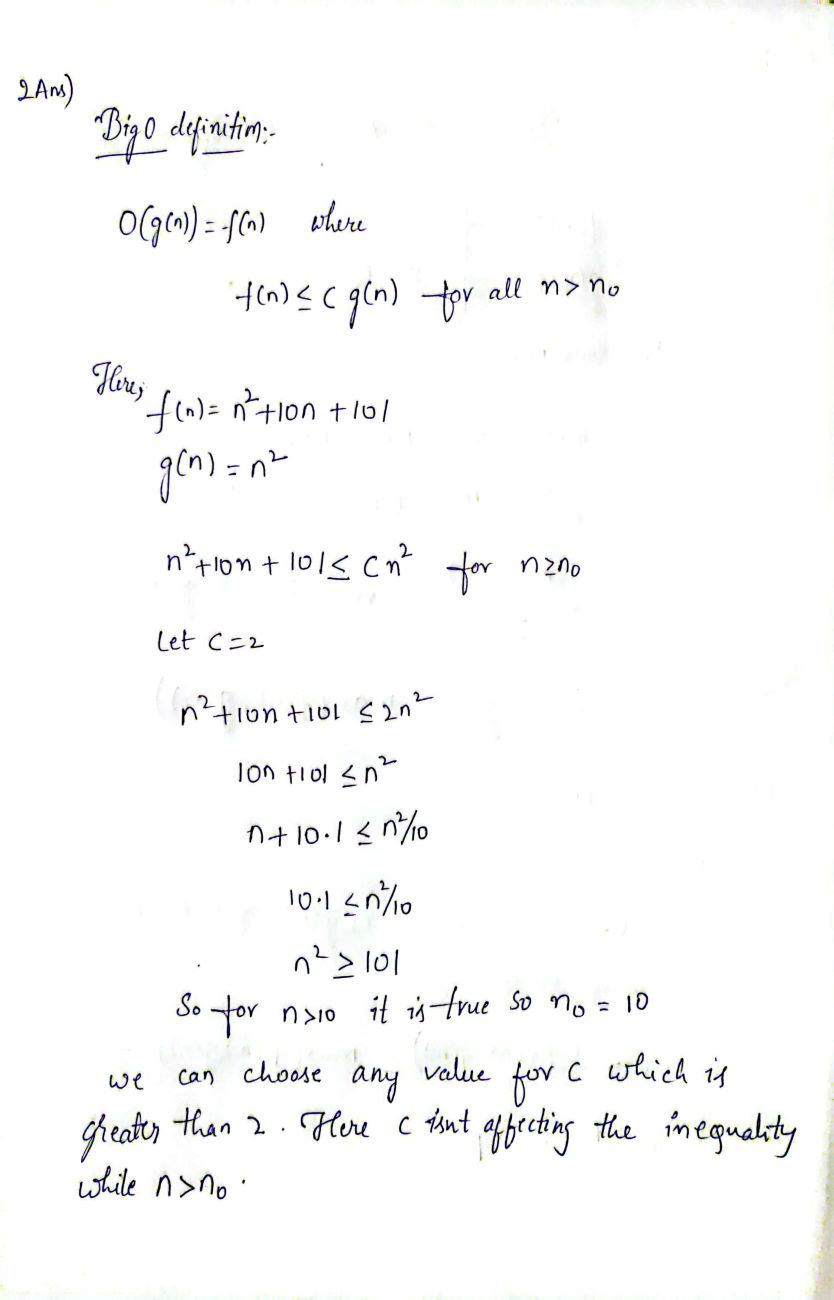 2Ans)
Big O definition:-
O(g(n)) = f(n) where
f(n) ≤ c g(n) for all n > n₀
Here,
f(n) = n² + 10n + 101
g(n) = n²
n² + 10n + 101 ≤ cn² for n ≥ n₀
Let c = 2
n² + 10n + 101 ≤ 2n²
10n + 101 ≤ n²
n + 10.1 ≤ n²/10
10.1 ≤ n²/10
n² ≥ 101
So for n>10 it is true so n₀ = 10
we can choose any value for c which is
greater than 2. Here c isnt affecting the inequality
while n>n₀.